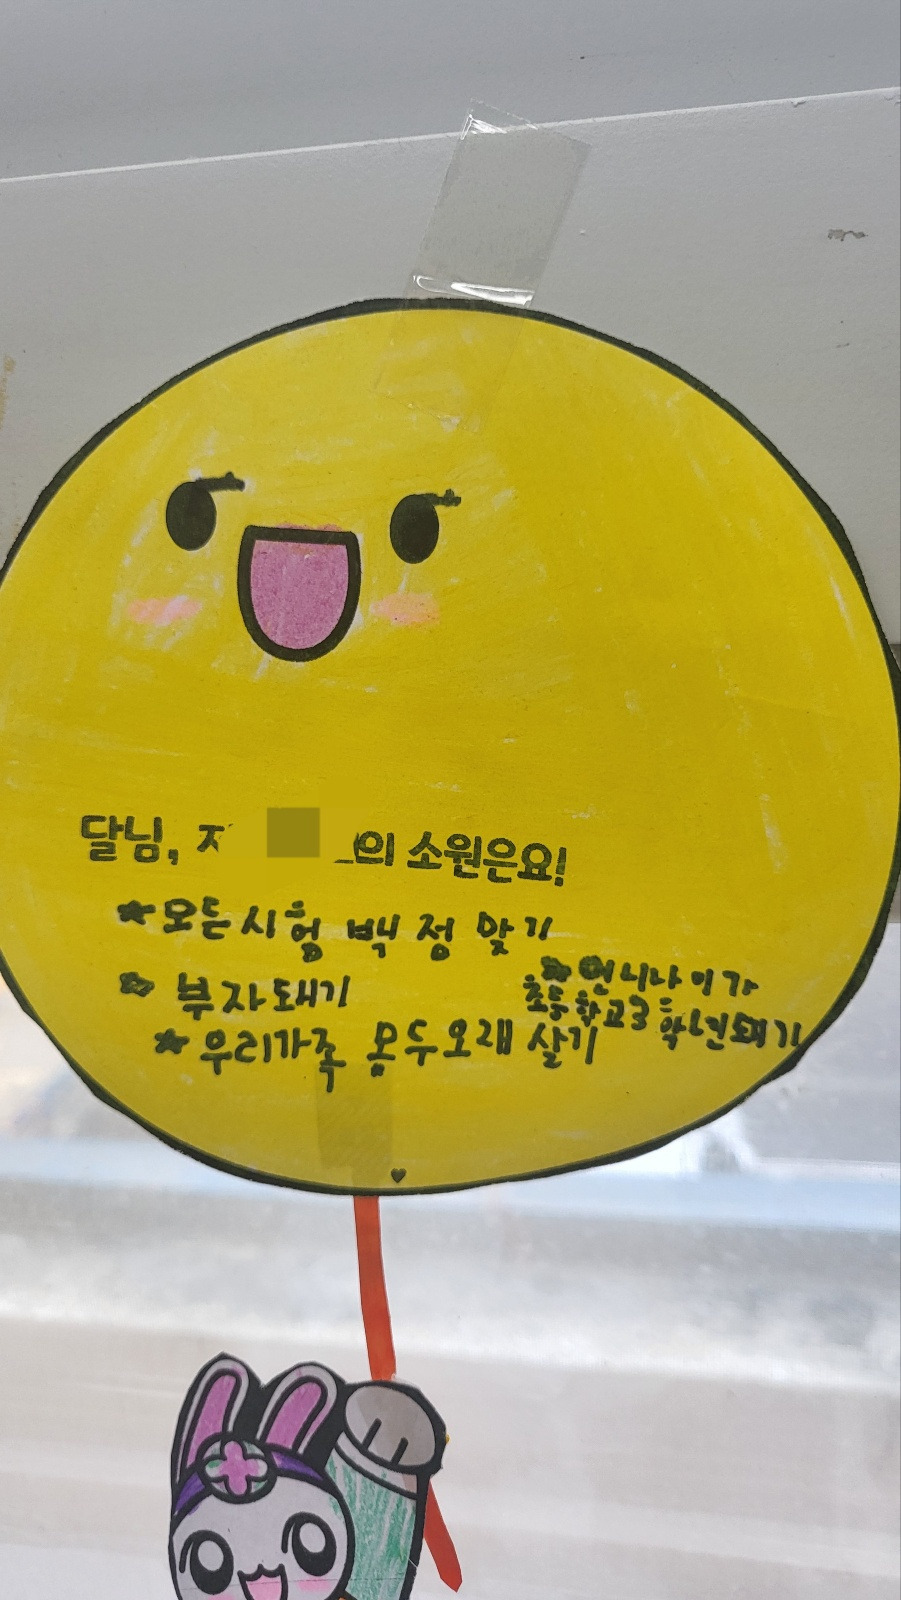 달님, 의 소원은요!
★모든시험 백정 맞기
★부자돼기
★언니나이가
초등학교3학년돼기
★우리가족 몽두오래 살기